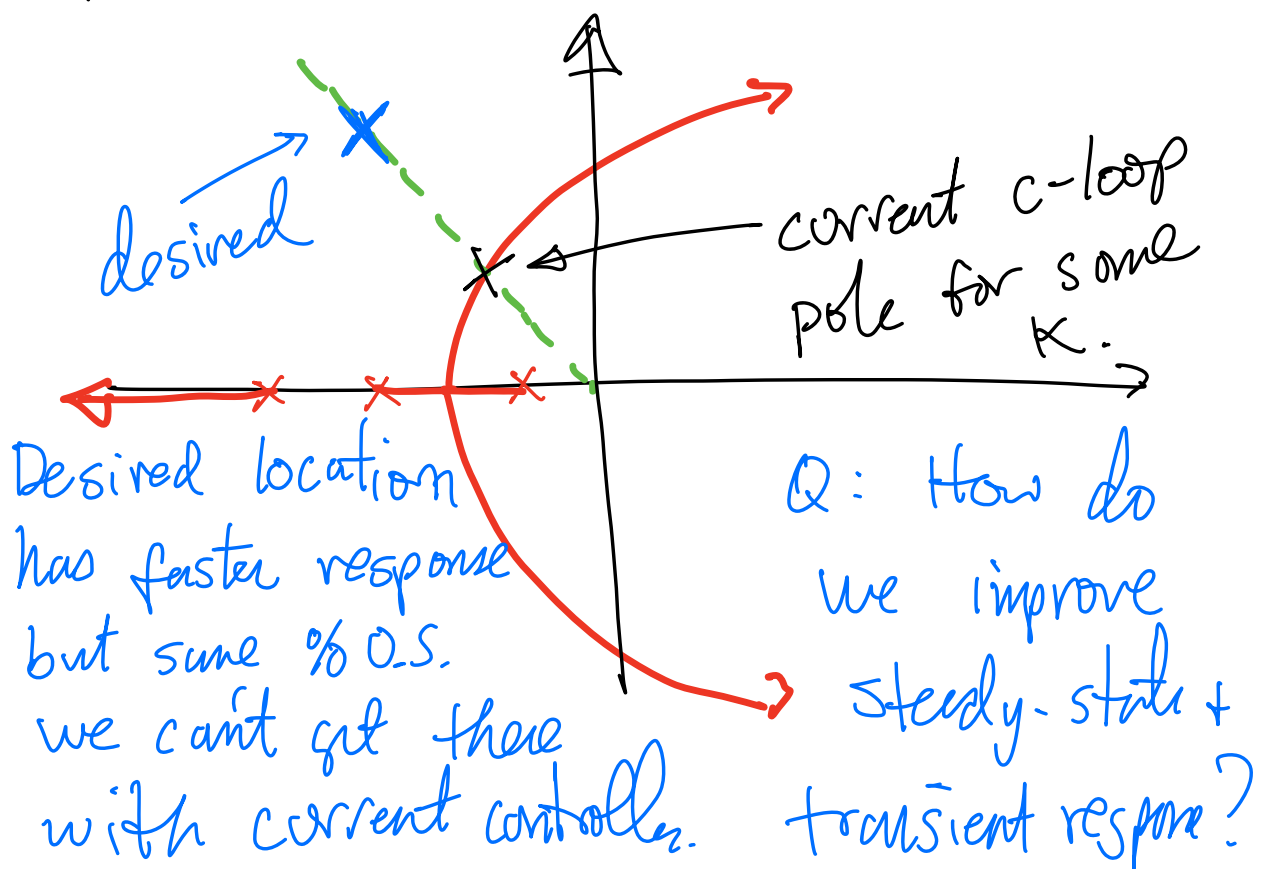 desired
current c-loop
pole for some
K.
Desired location
has faster response
but same % O.S.
we can't get there
with current controller.
Q: How do
we improve
steady-state +
transient response?